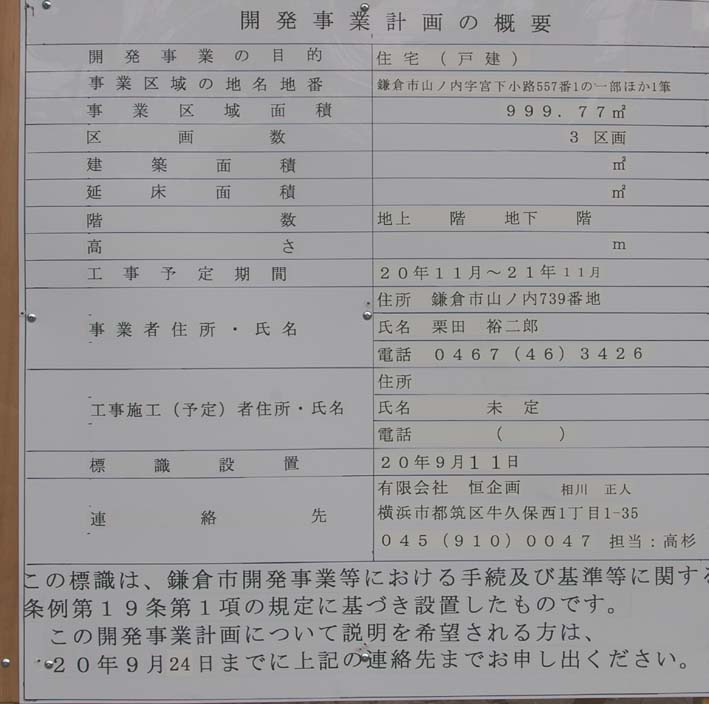 開発事業計画の概要
開発事業の目的 住宅(戸建)
事業区域の地名地番 鎌倉市山ノ内字宮下小路557番1の一部ほか1筆
事業区域面積 999.77㎡
区画数 3区画
建築面積 ㎡
延床面積 ㎡
階数 地上 階 地下 階
高さ m
工事予定期間 20年11月〜21年11月
事業者住所・氏名 住所 鎌倉市山ノ内739番地
氏名 栗田 裕二郎
電話 0467(46)3426
工事施工(予定)者住所・氏名 住所
氏名 未定
電話 ( )
標識設置 20年9月11日
連絡先 有限会社 恒企画 相川 正人
横浜市都筑区牛久保西1丁目1-35
045(910)0047 担当:高杉
この標識は、鎌倉市開発事業等における手続及び基準等に関する
条例第19条第1項の規定に基づき設置したものです。
この開発事業計画について説明を希望される方は、
20年9月24日までに上記の連絡先までお申し出ください。